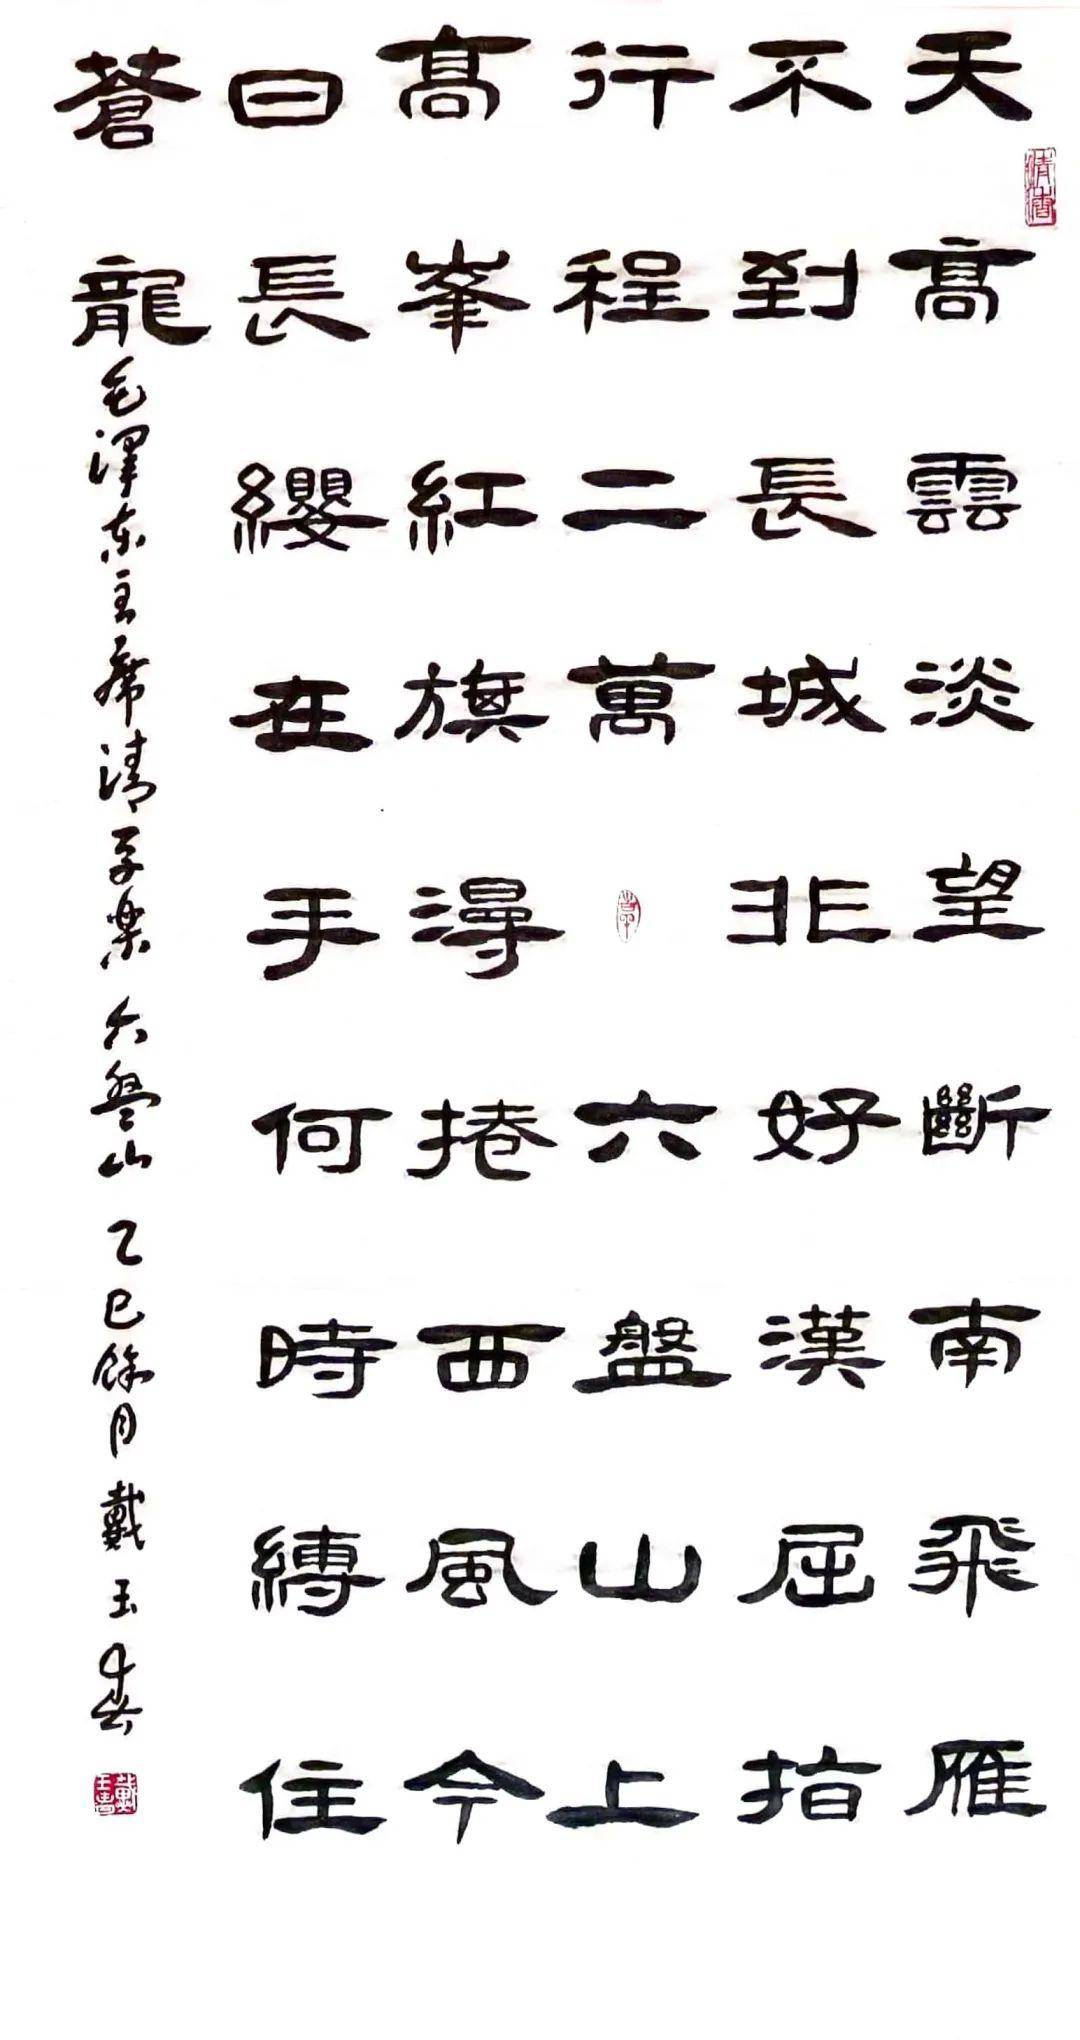 天髙雲淡望斷南飛雁
不到長城非好漢屈指
行程二萬六盤山上
髙峯紅旗漫捲西風今
日長纓在手何時縛住
蒼龍
毛澤东主席清平楽 六盤山 乙巳餘月 戴玉春
戴玉春